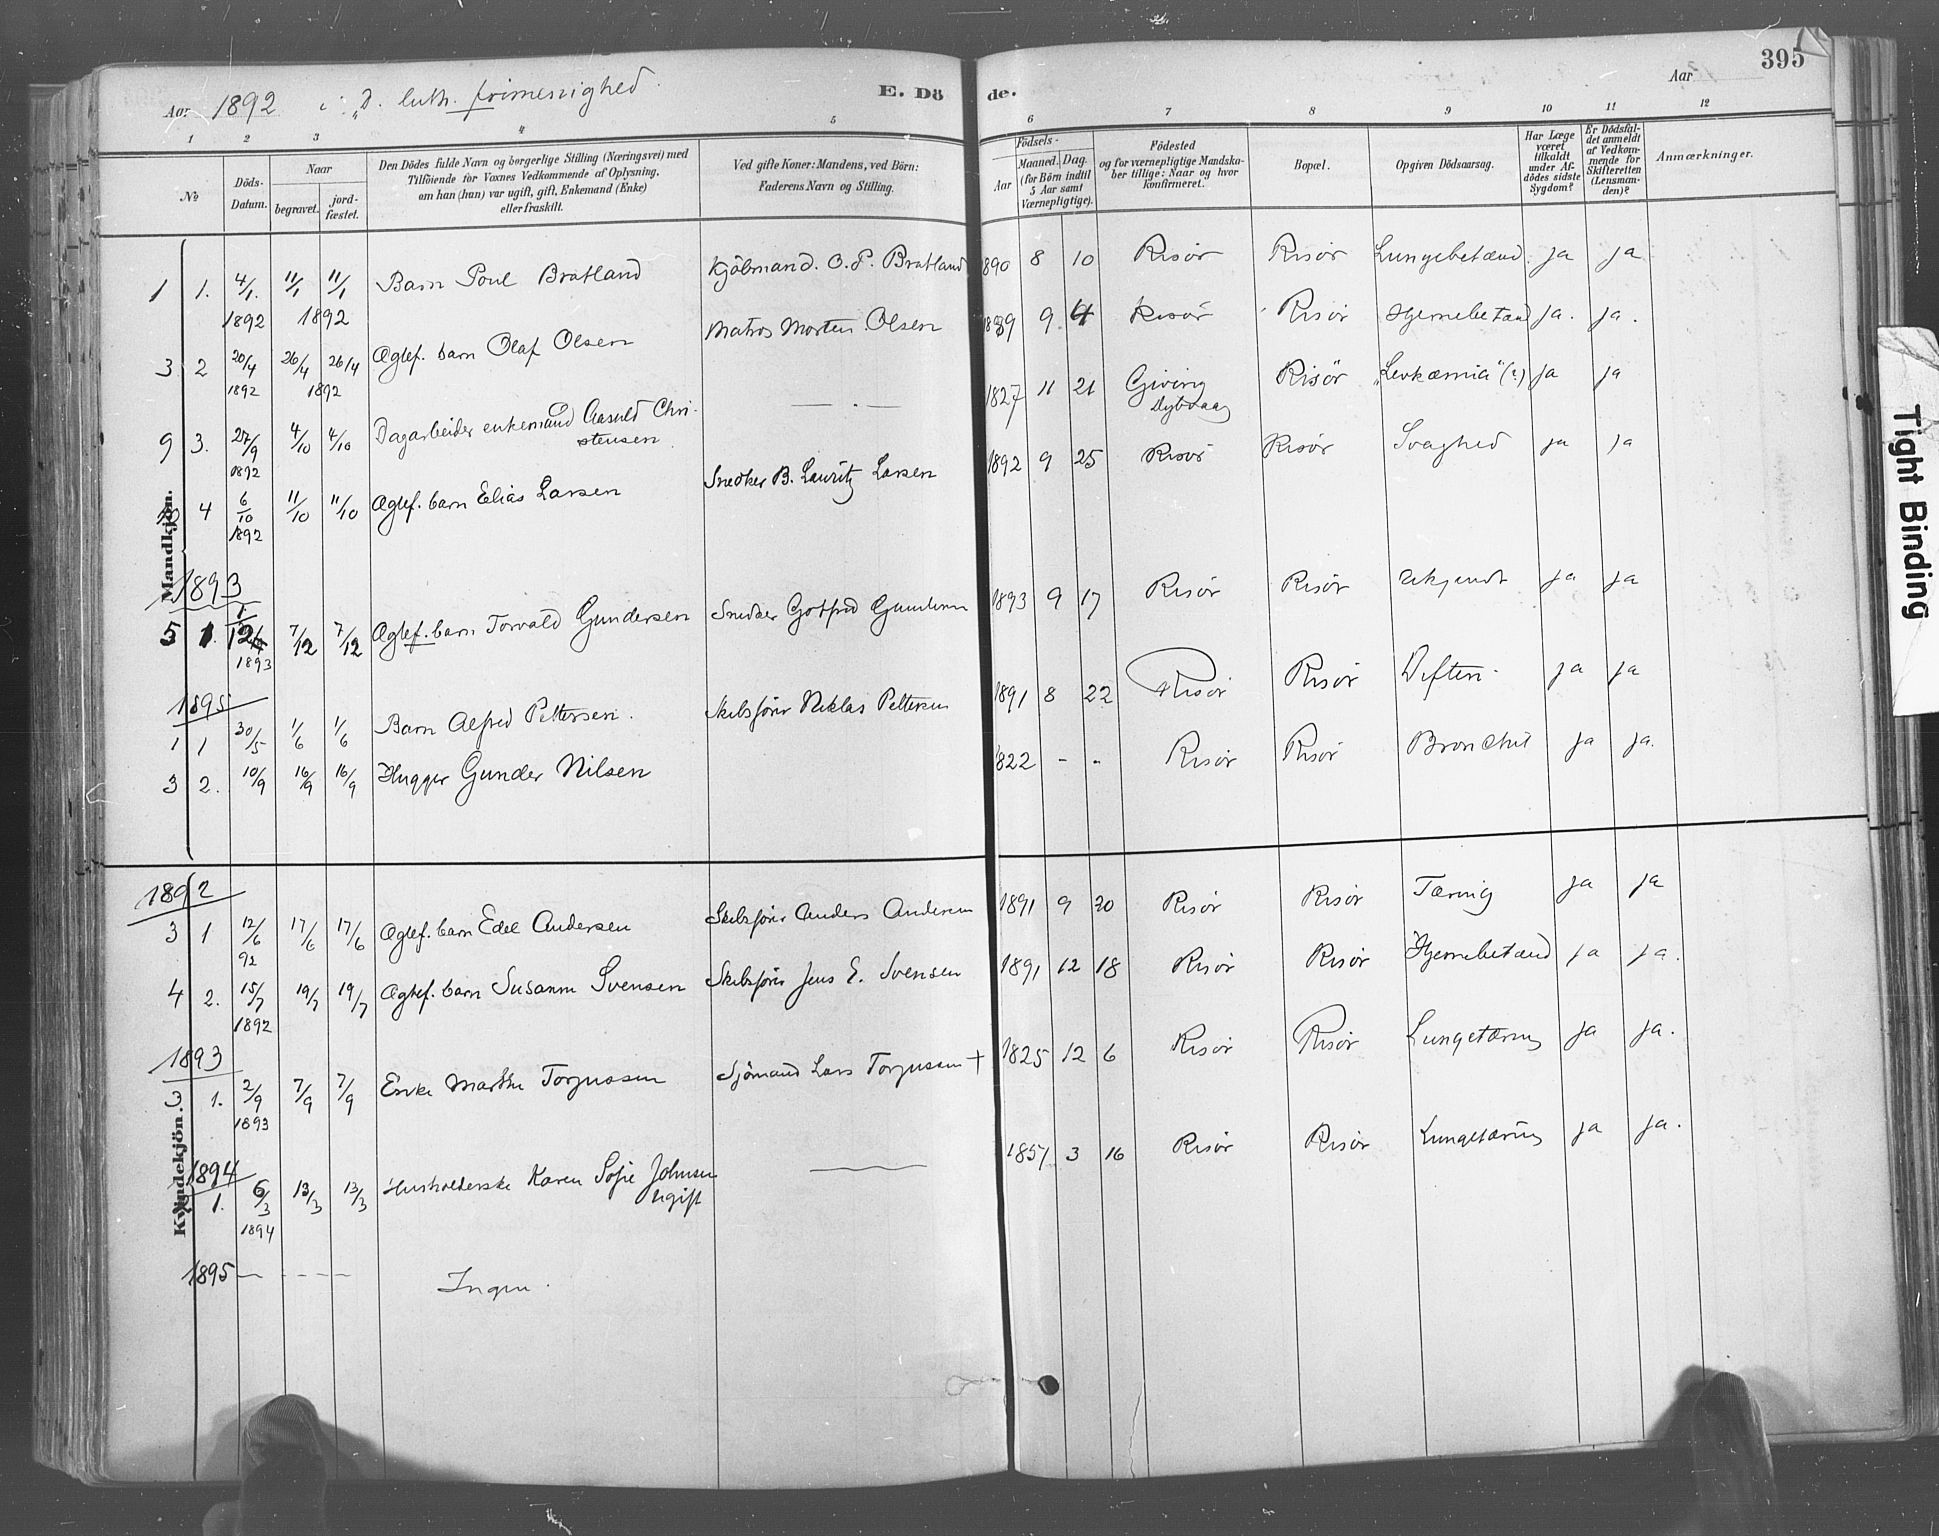 Aar 1892 i "D. luth. frimenighed.
E. Dö de.
Aar 395
1 2 3 4 5 6 7 8 9 10 11 12
No
Döds-Datum.
Naar
begravet.
jord-fæstet.
Den Dödes fulde Navn og borgerlige Stilling (Næringsvei) med
Tilföiende for Voxnes Vedkommende af Oplysning,
om han (hun) var ugift, gift, Enkemand (Enke)
eller fraskilt.
Ved gifte Koner: Mandens, ved Börn:
Faderens Navn og Stilling.
Födsels-
Aar
Maaned. Dag.
(for Börn indtil
5 Aar samt
Værnepligtige).
Födested
og for værnepligtige Mandska-
ber tillige: Naar og hvor
konfirmeret.
Bopæl.
Opgiven Dödsaarsag.
Har Læge
været
tilkaldt
under Af-
dödes sidste
Sygdom?
Er Dödsfal-
det anmeldt
af Vedkom-
mende for
Skifteretten
(Lensman-
den)?
Anmærkninger.
Mandkjön.
1 1. 4/1. 1892 11/1 11/1 1892 Barn Poul Bratland Kjöbmand. O. P. Bratland 1890 8 10 Risør Risør Lungebetænd. ja ja
3 2 20/4 1892 26/4 26/4 1892 Ægtef. barn Olaf Olsen Matros Morten Olsen 1889 9 4 Risör Risør Hjernebetænd ja. ja.
9 3. 27/9 1892 4/10 4/10 Dagarbeider enkemand Aasuld Chri-
stensen — . — 1827 11 21 Giving
Dybvaag Risör "Levkæmia" (?) ja ja
4 6/10 1892 11/10 11/10 Ægtef. barn Elias Larsen Snedker B. Lauritz Larsen 1892 9 25 Risør Risør Svaghed ja ja
1893
5 1. 1/12 1893 7/12 7/12 Ægtef. barn Torvald Gundersen Snedker Gotfred Gundersen 1893 9 17 Risør Risør ukjendt ja ja
1895
1 1 30/5 1/6 1/6 Barn Alfred Pettersen. Skibsfører Niklas Pettersen 1891 8 22 Risør Risør Difteri. ja ja
3 2. 10/9 16/9 16/9 Hugger Gunder Nilsen 1822 - - Risør Risør Bronchit ja ja.
Kvindekjön.
1892
3 1 12/6 92 17/6 17/6 Ægtef. barn Edel Andersen Skibsfører Anders Andersen 1891 9 20 Risør Risør Tæring ja ja
4 2. 15/7 1892 19/7 19/7 Ægtef. barn Susanne Svensen Skibsfører Jens E. Svensen 1891 12 18 Risør Risør Hjernebetænd ja ja.
1893
3 1. 2/9 1893 7/9 7/9 Enke Marthe Torjussen Sjömand Lars Torjussen † 1825 12 6 Risør Risør Lungetæring ja ja.
1894
1. 6/3 1894 13/3 13/3 Husholderske Karen Sofie Johnsen
ugift — 1857 3 16 Risør Risør Lungetæring ja ja.
1895 — - - - - Ingen.
Tight Binding